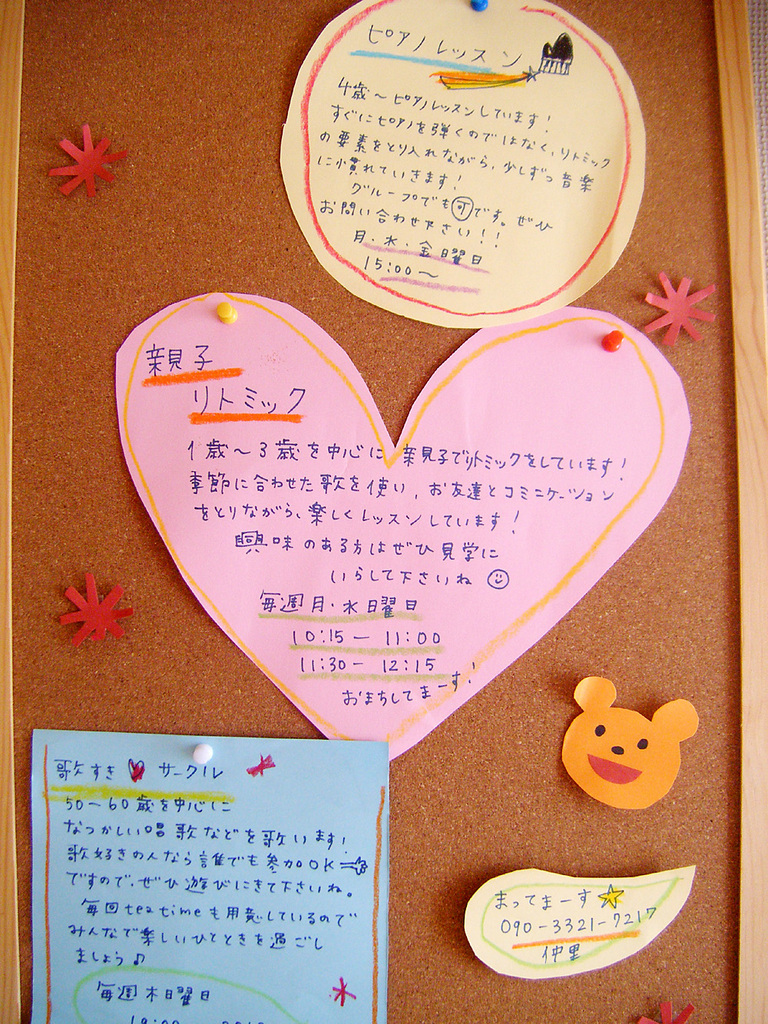 ピアノレッスン
4歳〜ピアノレッスンしています!
すぐにピアノを弾くのではなく、リトミック
の要素をとり入れながら、少しずつ音楽
に慣れていきます!
グループでも可です。ぜひ
お問い合わせ下さい!!
月・水・金曜日
15:00〜
親子
リトミック
1歳〜3歳を中心に親子でリトミックをしています!
季節に合わせた歌を使い、お友達とコミニケーション
をとりながら、楽しくレッスンしています!
興味のある方はぜひ見学に
いらして下さいね
毎週月・水曜日
10:15 — 11:00
11:30 — 12:15
おまちしてまーす!
歌すき♥サークル
50〜60歳を中心に
なつかしい唱歌などを歌います!
歌好きの人なら誰でも参加OK
ですので、ぜひ遊びにきて下さいね。
毎回teatimeも用意しているので
みんなで楽しいひとときを過ごし
ましょう♪
毎週木曜日
まってまーす☆
090-3321-7217
仲里